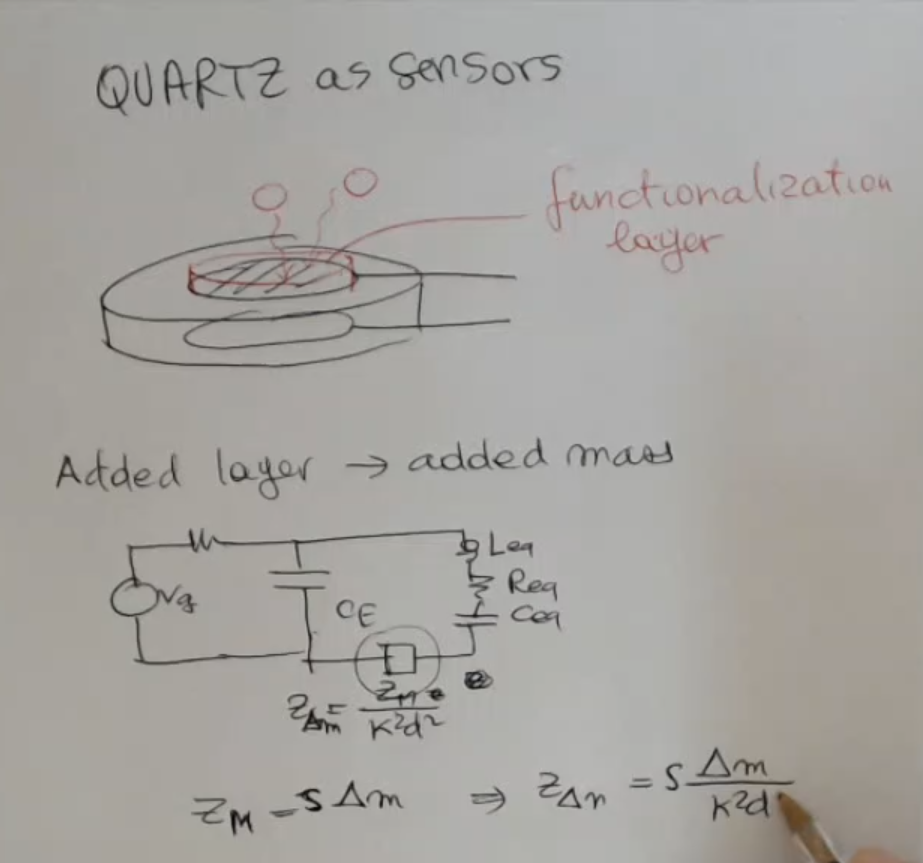 QUARTZ as sensors
functionalization
layer
Added layer → added mass
Leq
Req
Vg
CE
Ceq
ZΔm = ZM / K²d²
ZM = SΔm ⇒ ZΔm = S Δm / K²d